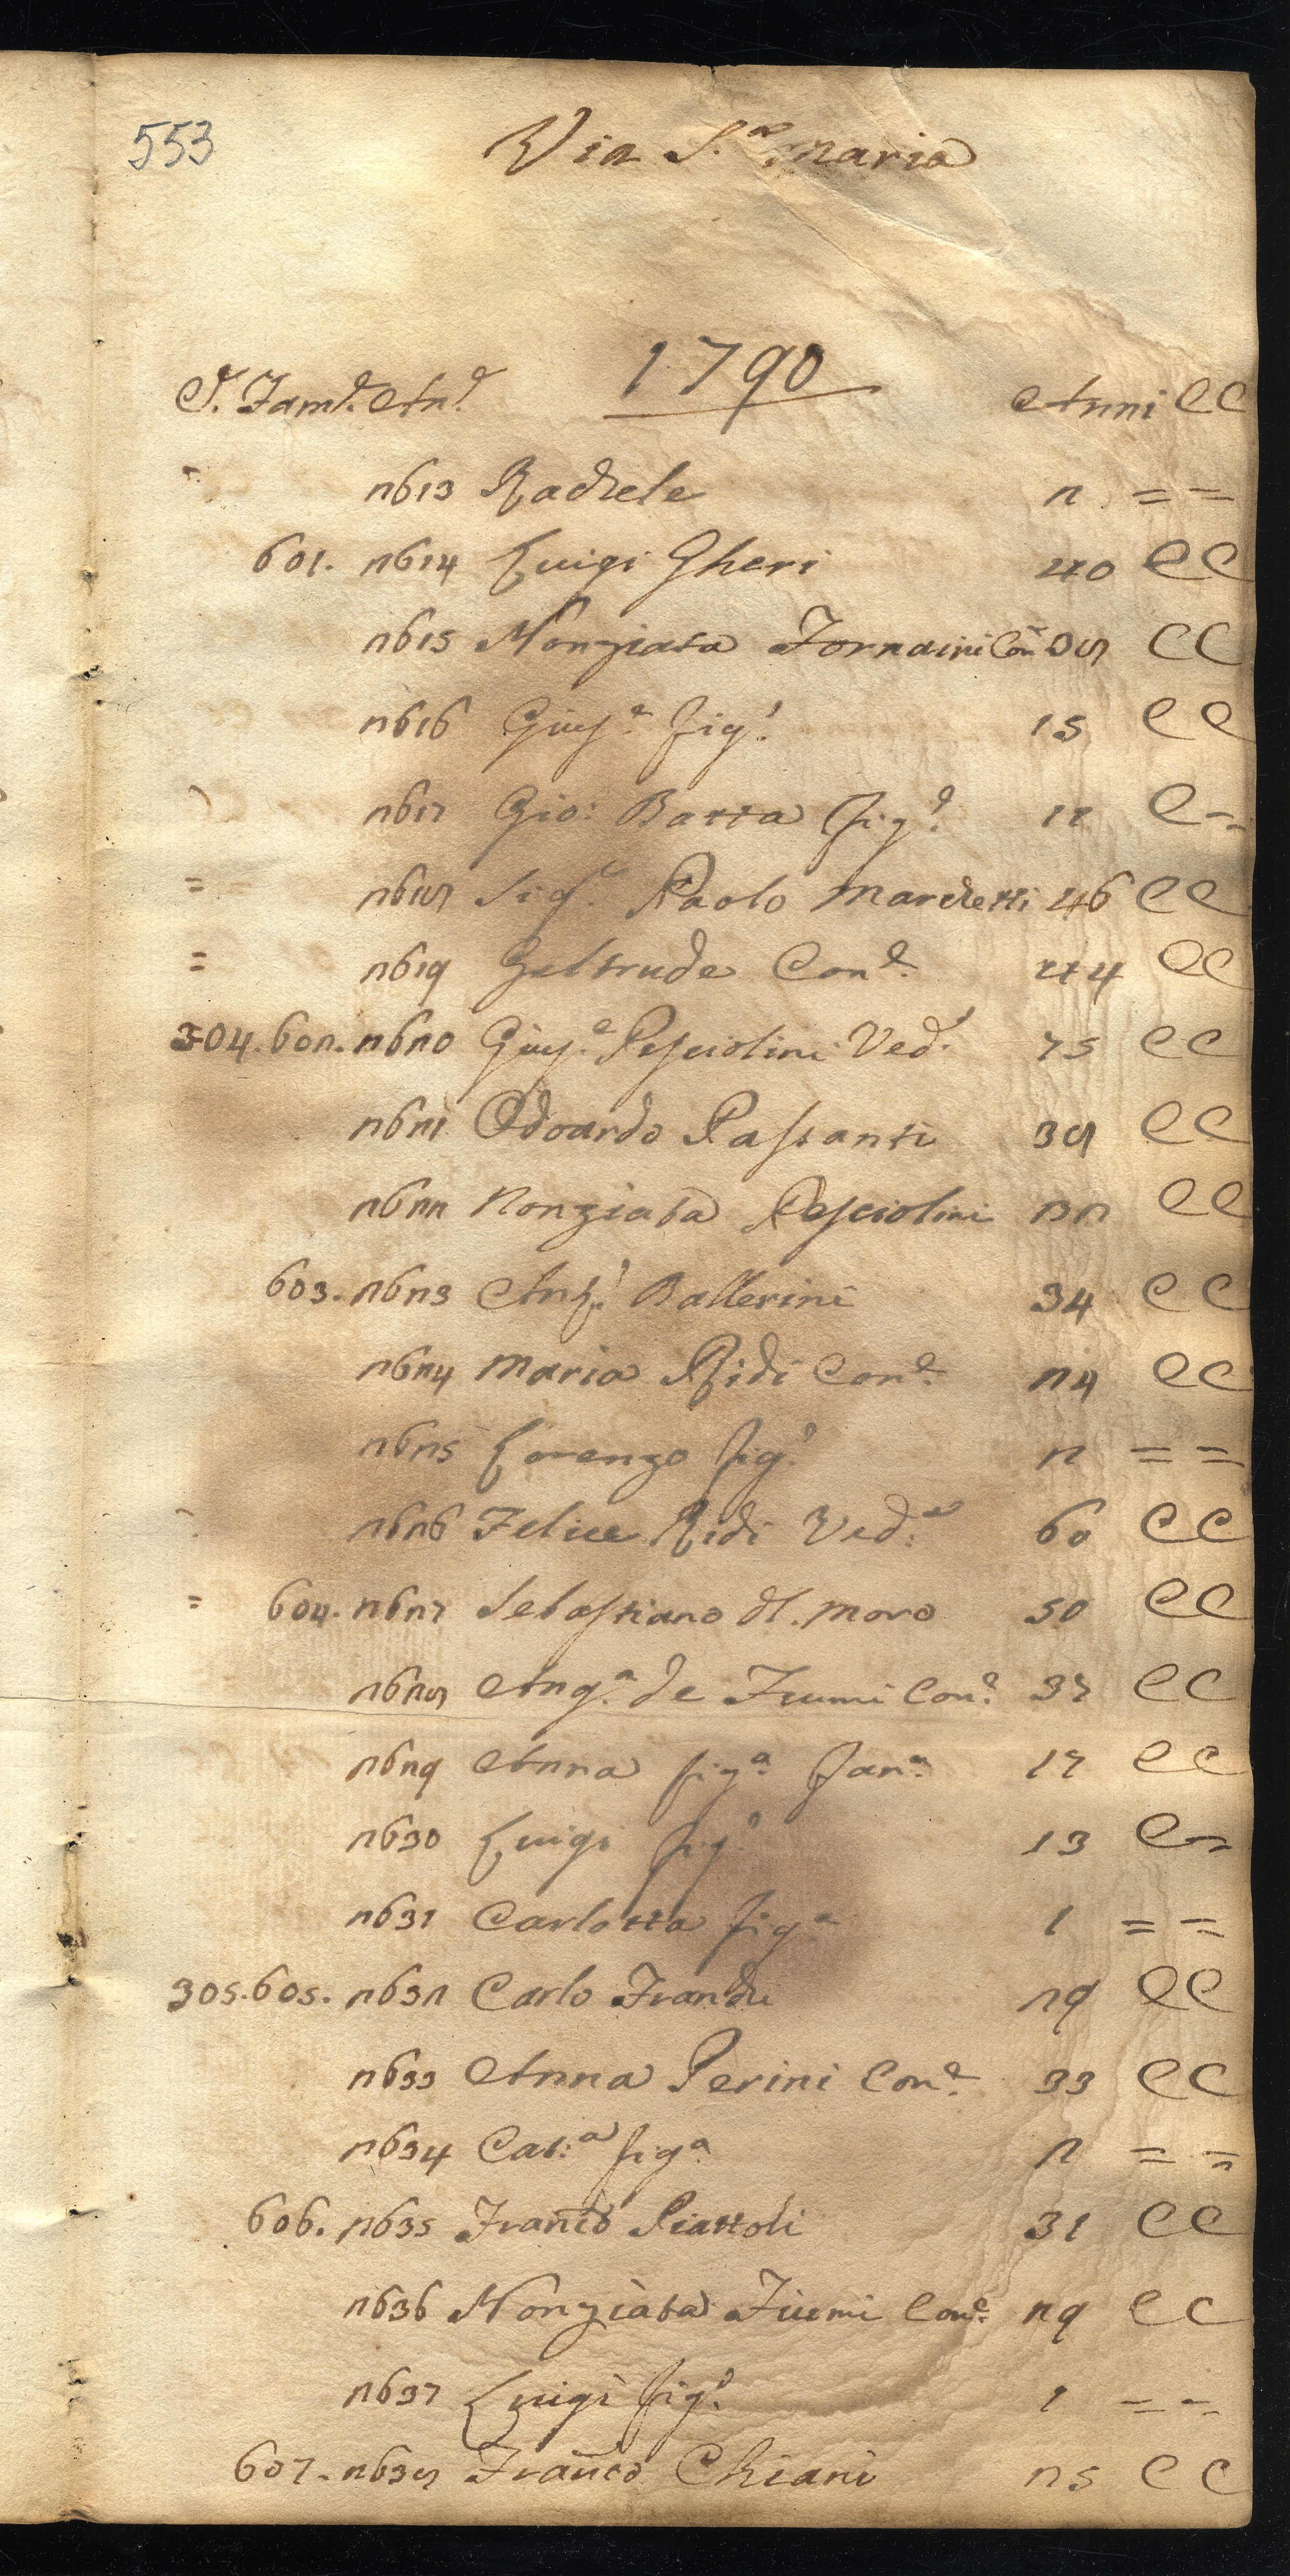 553
Via S.ª Maria
1790
C. Fam.e An.e Anni CC
2613 Rachele 2 = =
601. 2614 Luigi Gheri 40 CC
2615 Nonziata Fornaini Con 38 CC
2616 Giuſ.e fig.º 15 CC
2617 Gio: Batta fig.º 12 C=
= 2618 Sig.r Paolo Marchetti 46 CC
= 2619 Geltrude Con.e 44 CC
304. 602. 2620 Giuſ.e Peſciolini Ved.º 75 CC
2621 Odoardo Paſsanti 38 CC
2622 Nonziata Peſciolini 22 CC
603. 2623 Ang.º Ballerini 34 CC
2624 Maria Ridi Con.e 24 CC
2625 Lorenzo fig.º 2 = =
2626 Felice Ridi Ved.ª 60 CC
= 604. 2627 Sebaſtiano dl. Moro 50 CC
2628 Ang.ª de Fiumi Con.e 37 CC
2629 Anna fig.ª Fan.ª 17 CC
2630 Luigi fig.º 13 C=
2631 Carlotta fig.ª 1 = =
305. 605. 2632 Carlo Franchi 29 CC
2633 Anna Perini Con.e 33 CC
2634 Cat:ª fig.ª 2 = =
606. 2635 Franco Piattoli 31 CC
2636 Nonziata Fiumi Con.e 29 CC
2637 Luigi fig.º 1 = =
607. 2638 Franco Chiani 25 CC